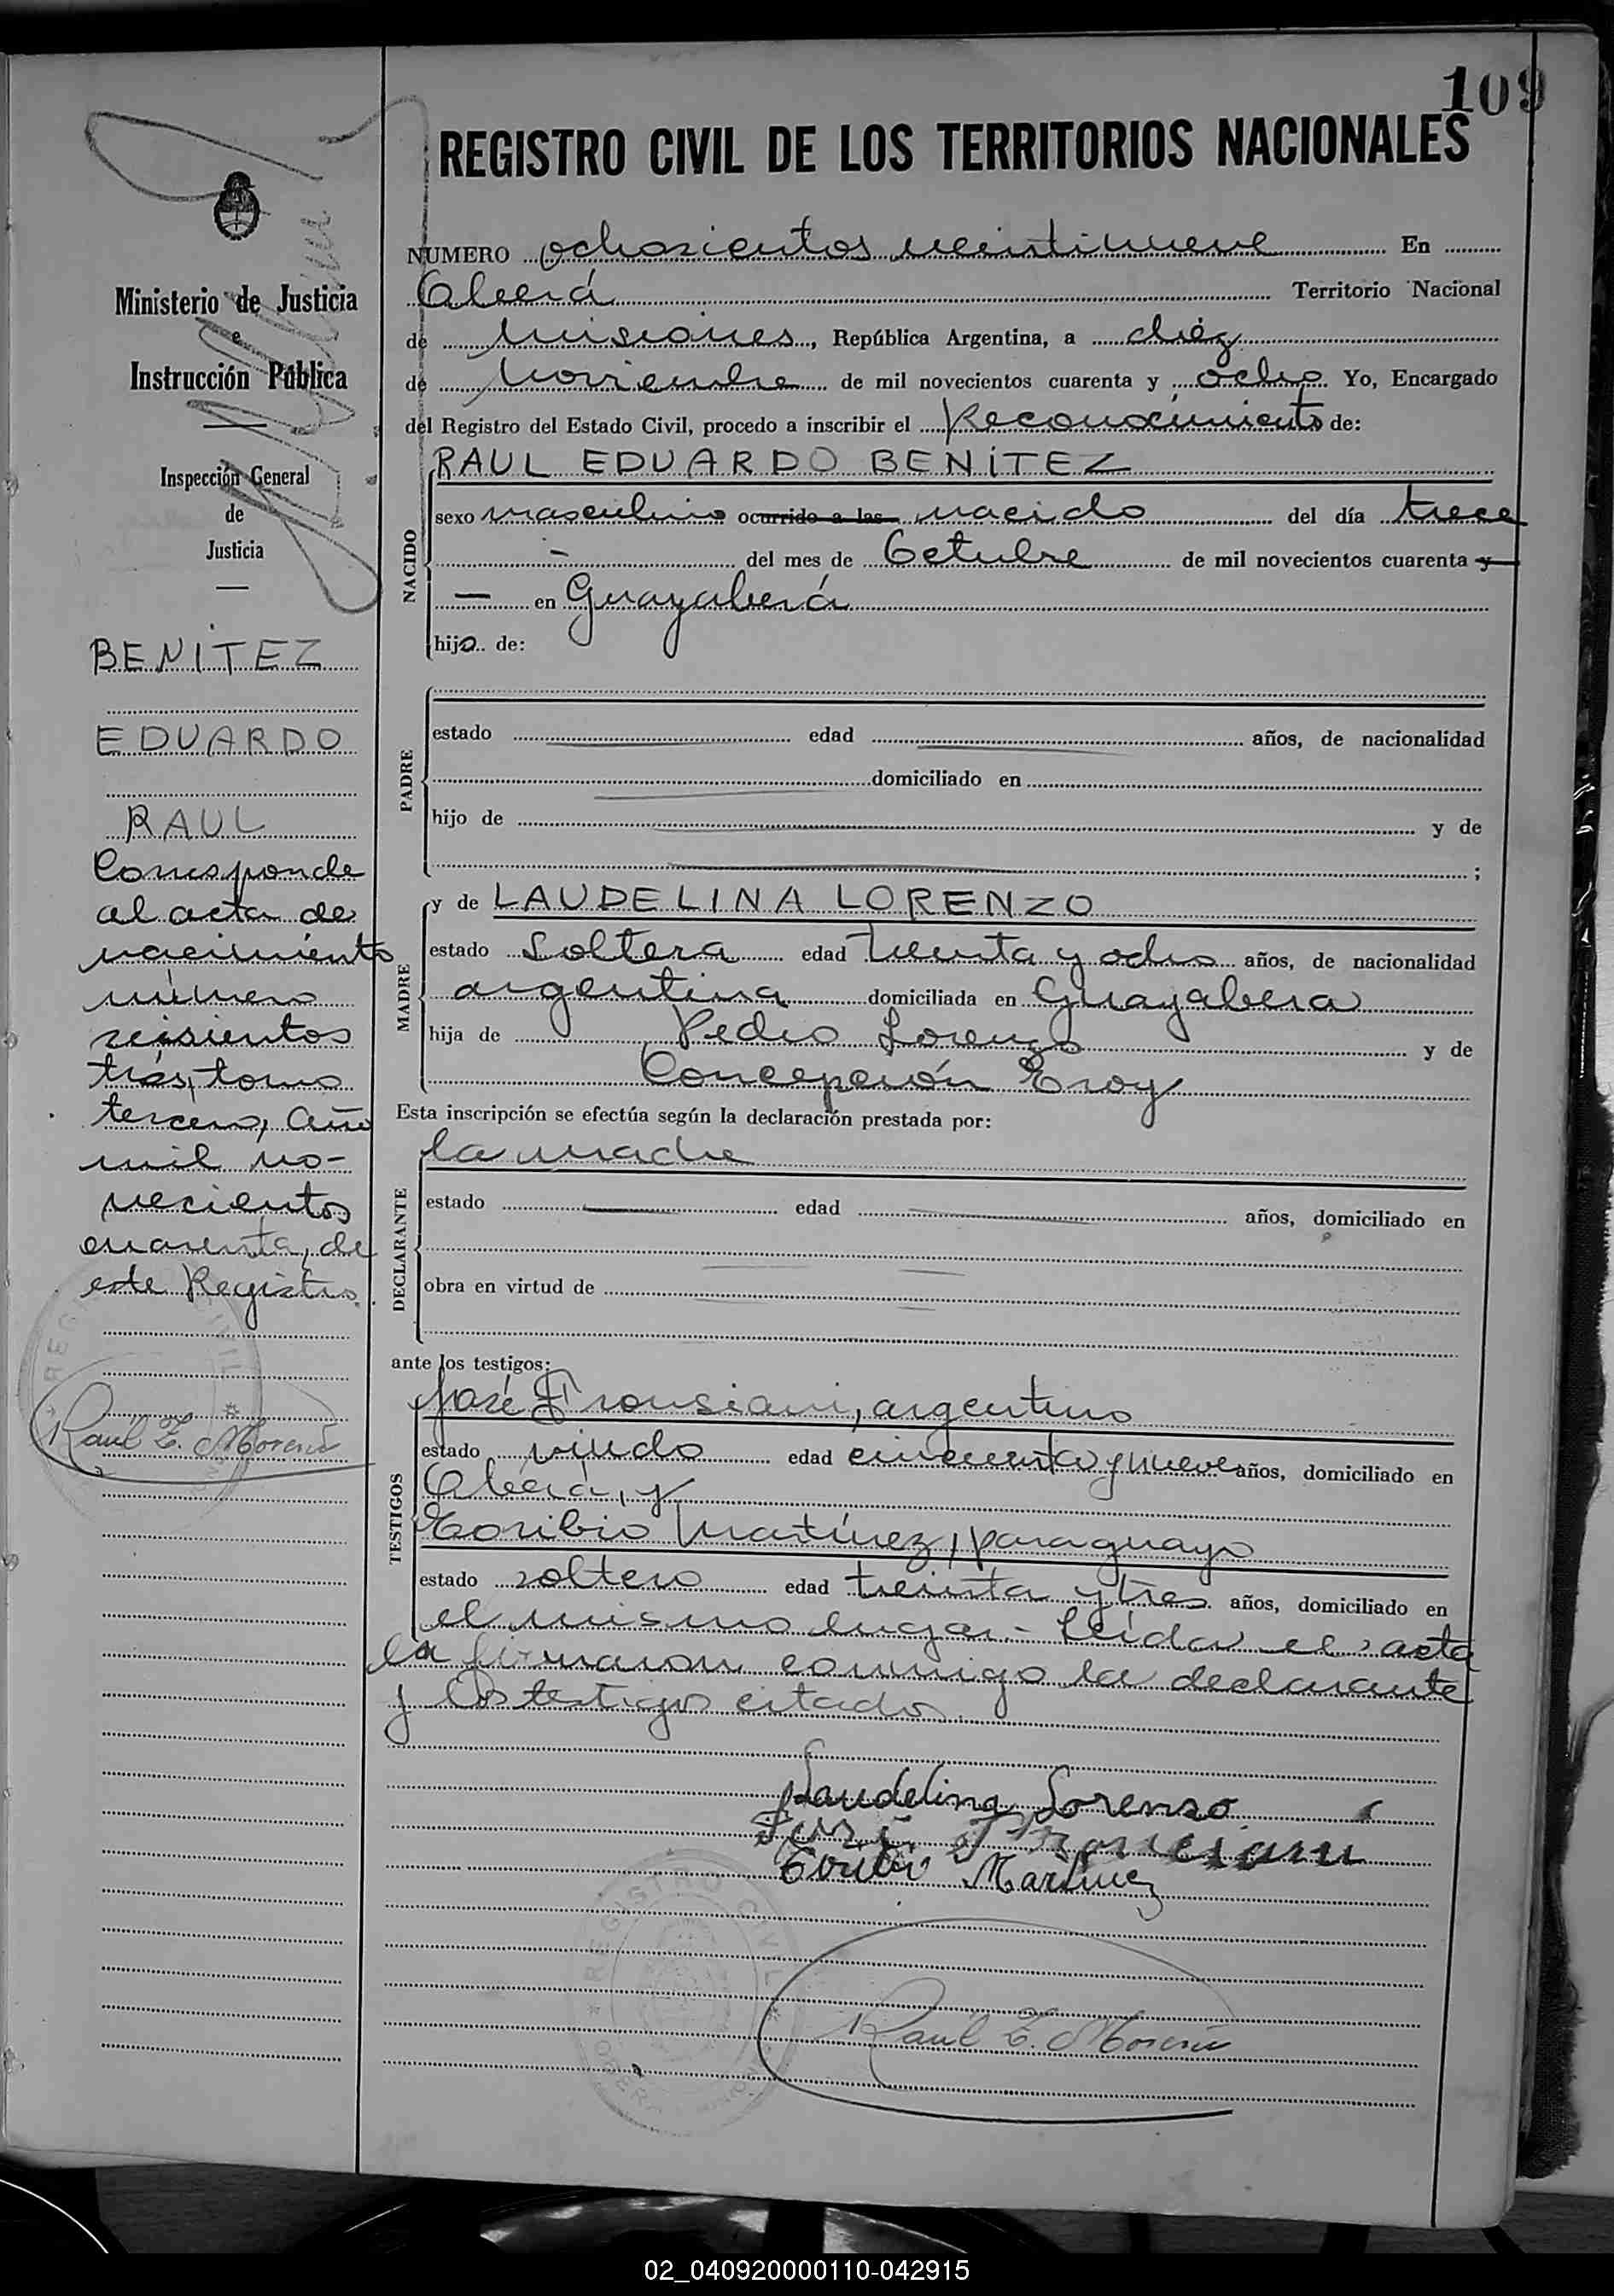 109
REGISTRO CIVIL DE LOS TERRITORIOS NACIONALES
Ministerio de Justicia
e
Instrucción Pública
Inspección General
de
Justicia
BENÍTEZ
EDUARDO
RAUL
Corresponde
al acta de
nacimiento
número
seisientos
tres, tomo
tercero, año
mil no-
vecientos
cuarenta, de
este Registro.
Raúl E. Moreno
NUMERO ochosientos veintinueve En
Oberá Territorio Nacional
de Misiones, República Argentina, a diéz
de Noviembre de mil novecientos cuarenta y ocho Yo, Encargado
del Registro del Estado Civil, procedo a inscribir el Reconocimiento de:
NACIDO
RAUL EDUARDO BENÍTEZ
sexo masculino ocurrido a las nacido del día trece
- del mes de Octubre de mil novecientos cuarenta y
— en Guayaberá
hijo de:
PADRE
estado edad años, de nacionalidad
domiciliado en
hijo de y de
;
MADRE
y de LAUDELINA LORENZO
estado Soltera edad treinta y ocho años, de nacionalidad
argentina domiciliada en Guayabera
hija de Pedro Lorenzo y de
Concepción Eroy
Esta inscripción se efectúa según la declaración prestada por:
DECLARANTE
la madre
estado edad años, domiciliado en
obra en virtud de
ante los testigos:
TESTIGOS
José Fronsiani, argentino
estado viudo edad cincuenta y nueve años, domiciliado en
Oberá, y
Toribio Martínez, paraguayo
estado soltero edad treinta y tres años, domiciliado en
el mismo lugar.- Leída el acta
la firmaron conmigo la declarante
y los testigos citados.
Laudelina Lorenzo
José Fronciani
Toribio Martinez
REGISTRO CIVIL
OBERA
Raúl E. Moreno
02_040920000110-042915